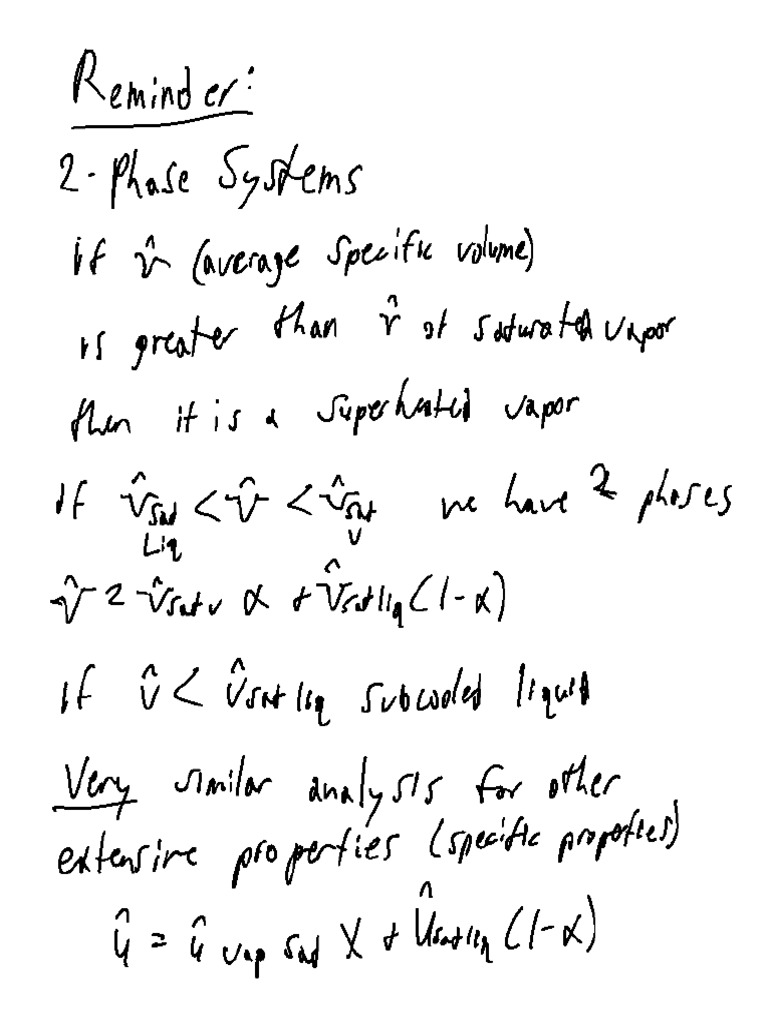 Reminder:
2-Phase Systems
if v̂ (average specific volume)
is greater than v̂ of saturated vapor
then it is a superheated vapor
if v̂sat Liq < v̂ < v̂sat v we have 2 phases
v̂ = v̂sat v α + v̂sat liq (1-α)
if v̂ < v̂sat liq subcooled liquid
Very similar analysis for other
extensive properties (specific properties)
û = û vap sat X + Ûsat liq (1-α)